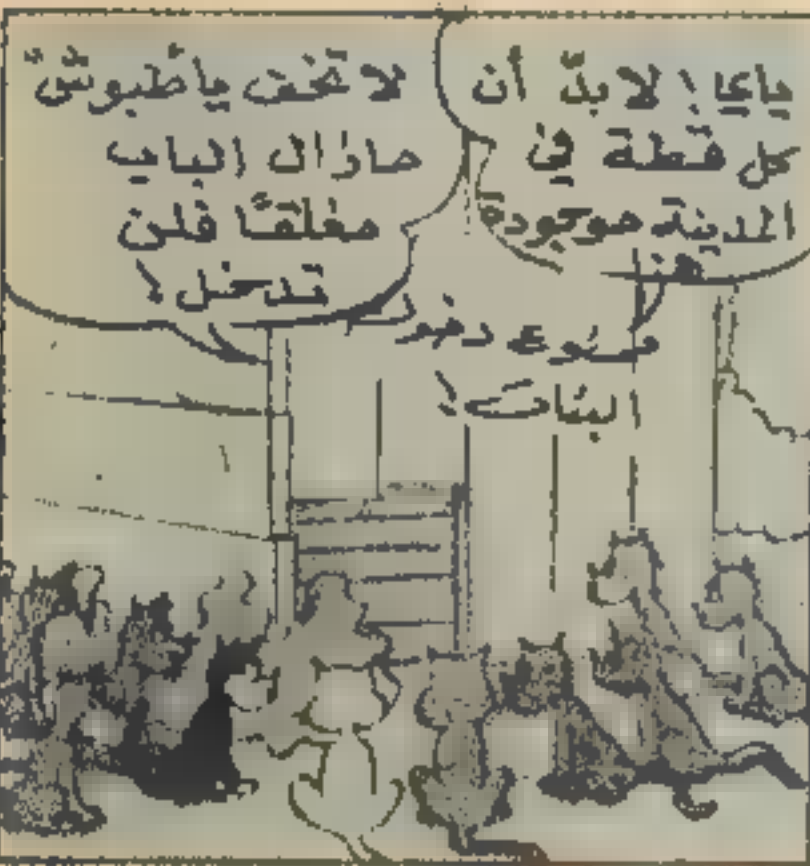 يا‌عا! لا بدّ أن
كل قطة في
المدينة موجودة
هنا
لا تخف يا طبوش
مازال الباب
مغلقًا فلن
تدخل!
ممنوع دخول
البنات!